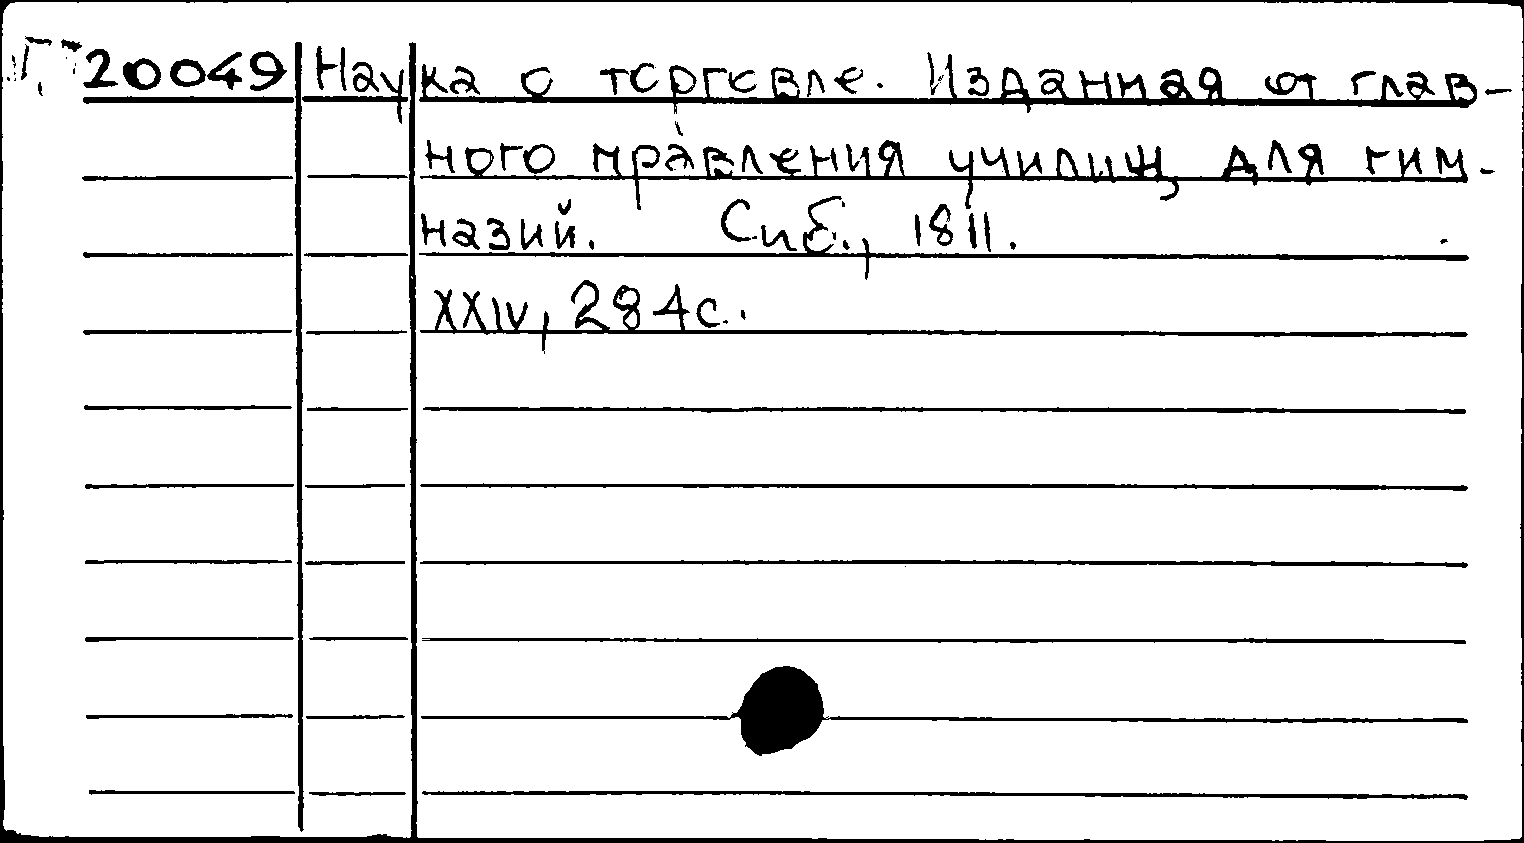 20049 Наука о торговле. Изданная от глав-
ного правления училищ, для гим-
назий. Спб., 1811.
XXIV, 284с.